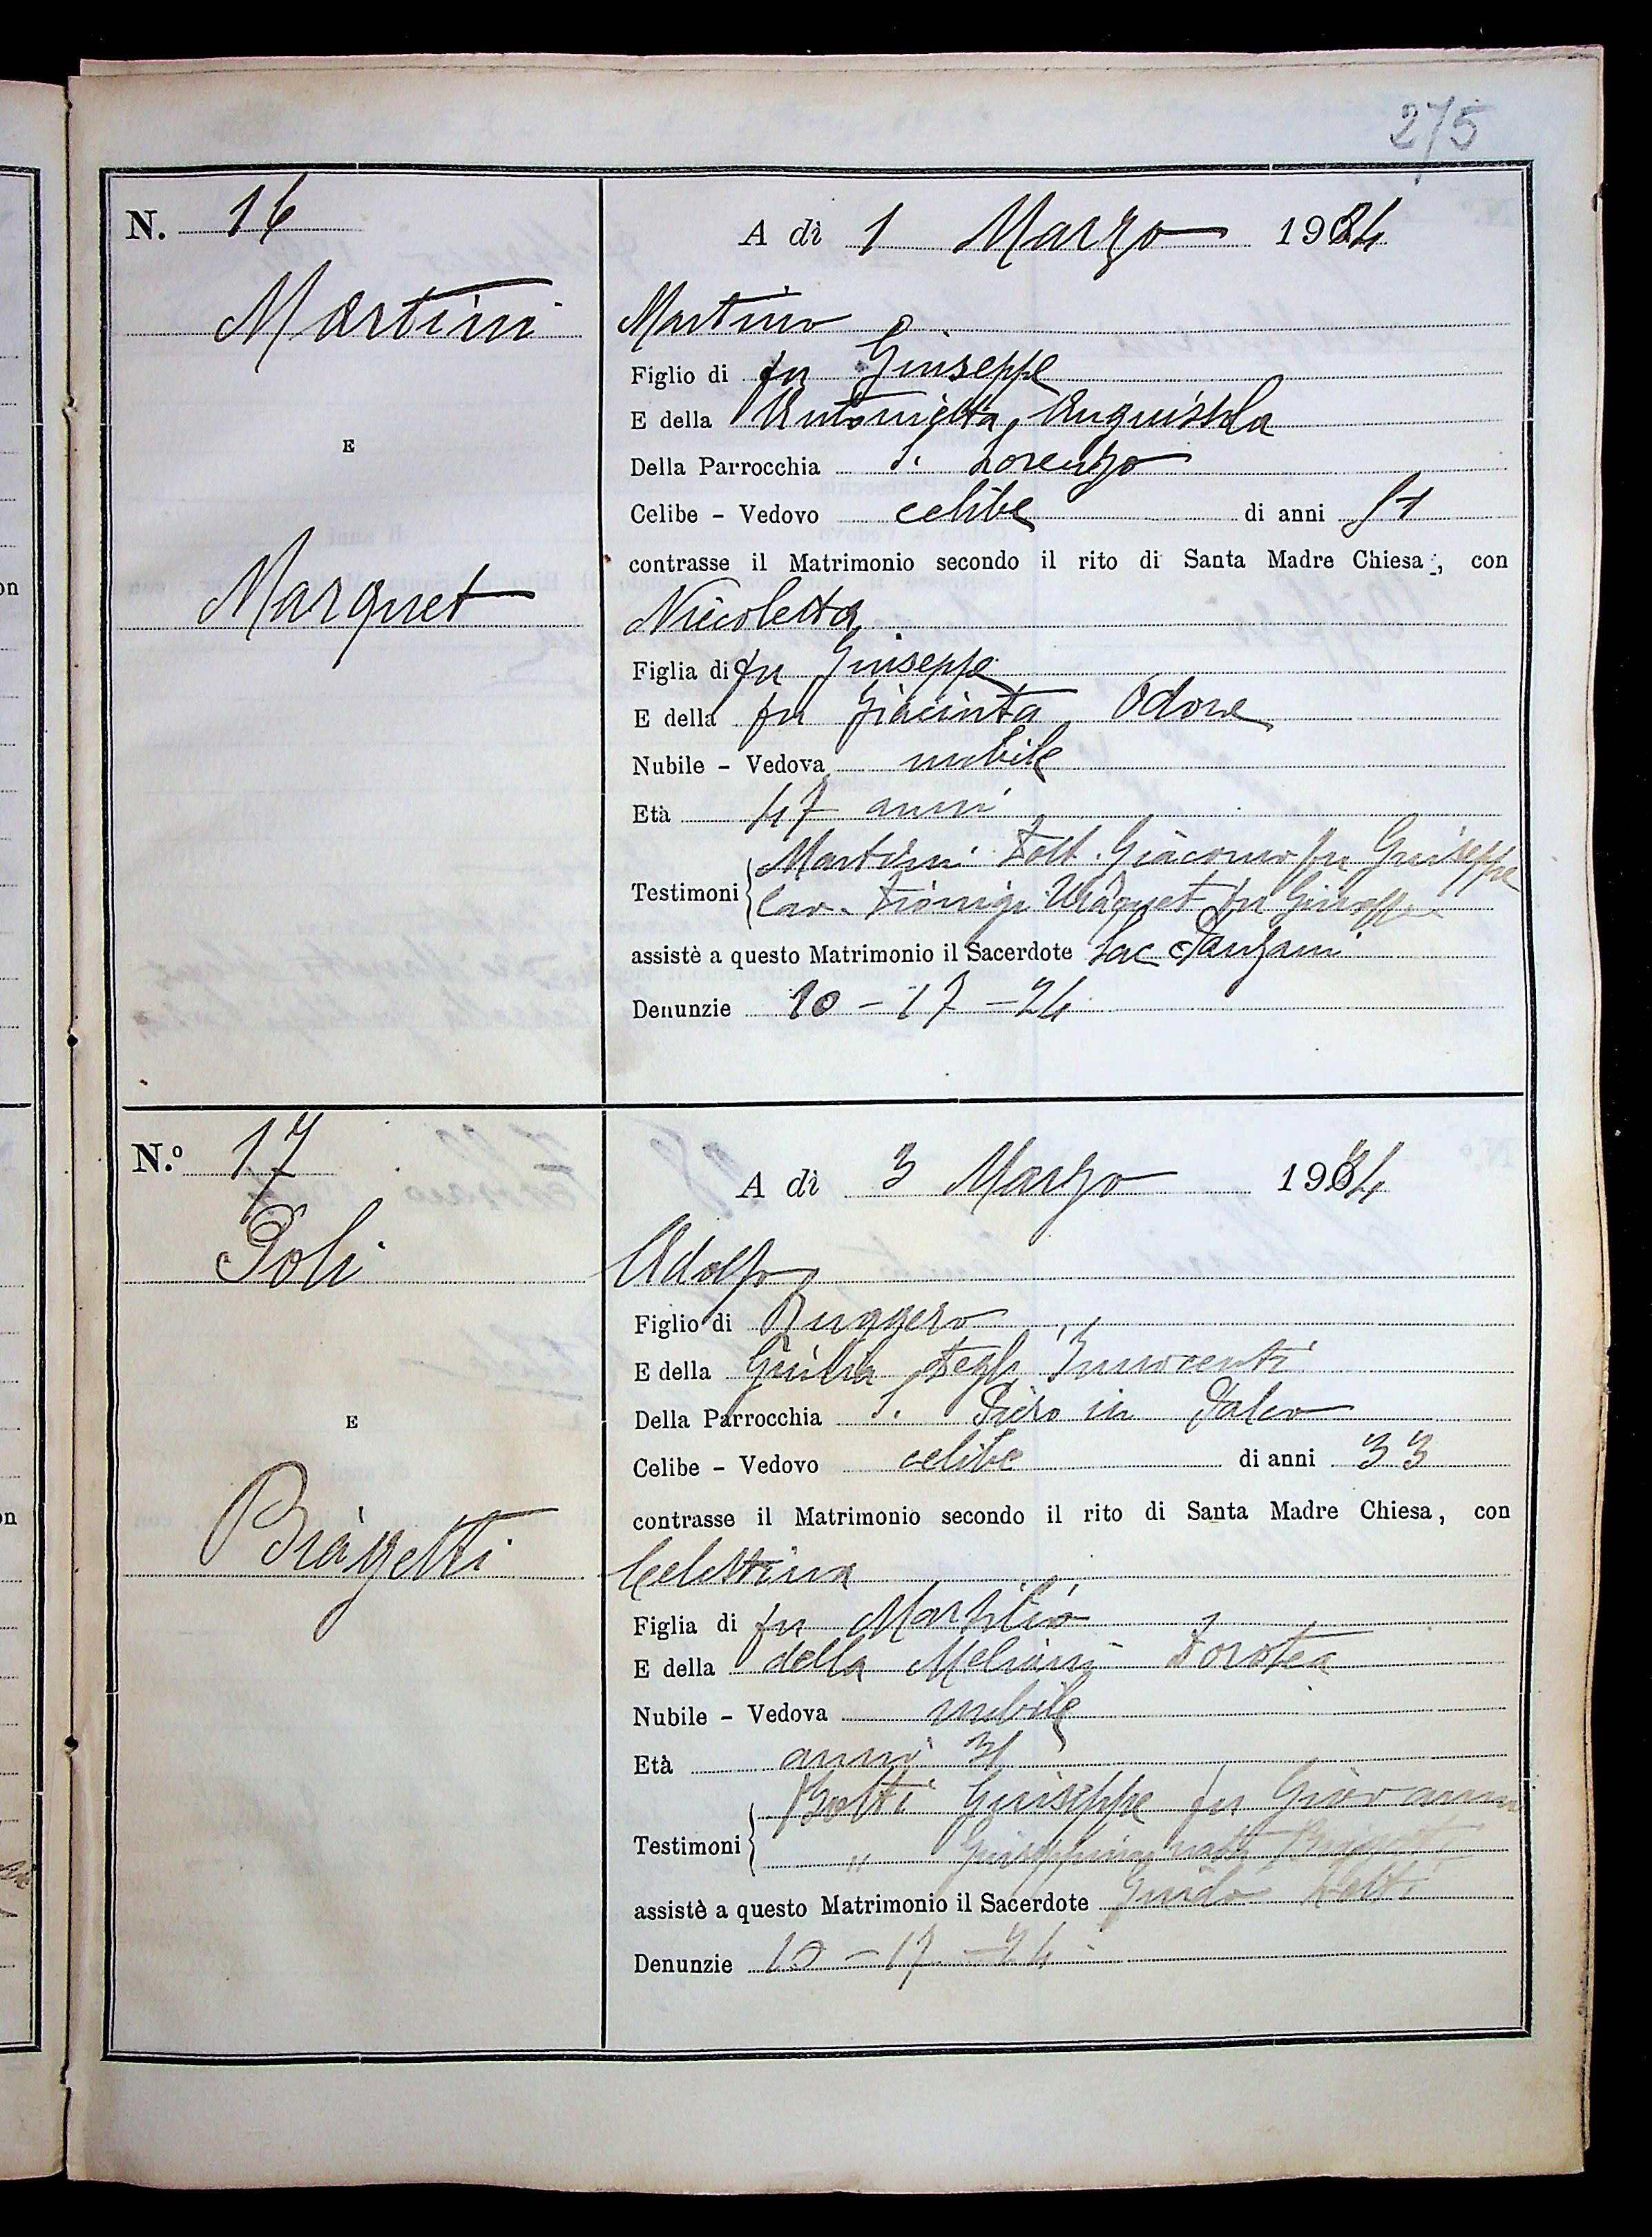 275
N. 16
A dì 1 Marzo 1924
Martini
Martino
Figlio di fu Giuseppe
E della Antonietta Anguissola
E
Della Parrocchia S. Lorenzo
Celibe - Vedovo celibe di anni 51
contrasse il Matrimonio secondo il rito di Santa Madre Chiesa, con
Marquet
Nicoletta
Figlia di fu Giuseppe
E della fu Giacinta Odone
Nubile - Vedova nubile
Età 47 anni
Testimoni Martini Dott. Giacomo fu Giuseppe
Cav. Dionigi Marquet fu Giuseppe
assistè a questo Matrimonio il Sacerdote Sac
Denunzie 10 - 17 - 24
N.º 17
A dì 3 Marzo 1924
Poli
Adolfo
Figlio di Ruggero
E della Giulia Degli Innocenti
E
Della Parrocchia S. Piero in Palco
Celibe - Vedovo celibe di anni 33
contrasse il Matrimonio secondo il rito di Santa Madre Chiesa, con
Biagetti
Celestina
Figlia di fu Marsilio
E della della Meliani Dorotea
Nubile - Vedova nubile
Età anni 31
Testimoni Botti Giuseppe fu Giovanni
" Giuseppina nata Biagetti
assistè a questo Matrimonio il Sacerdote Guido
Denunzie 10 - 17 - 24